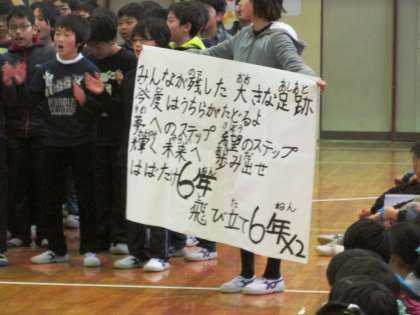 みんなが残した 大きな足跡
今度はうちらがたどるよ
夢へのステップ 希望のステップ
輝く未来へ 歩み出せ
はばたけ6年
飛び立て6年×2